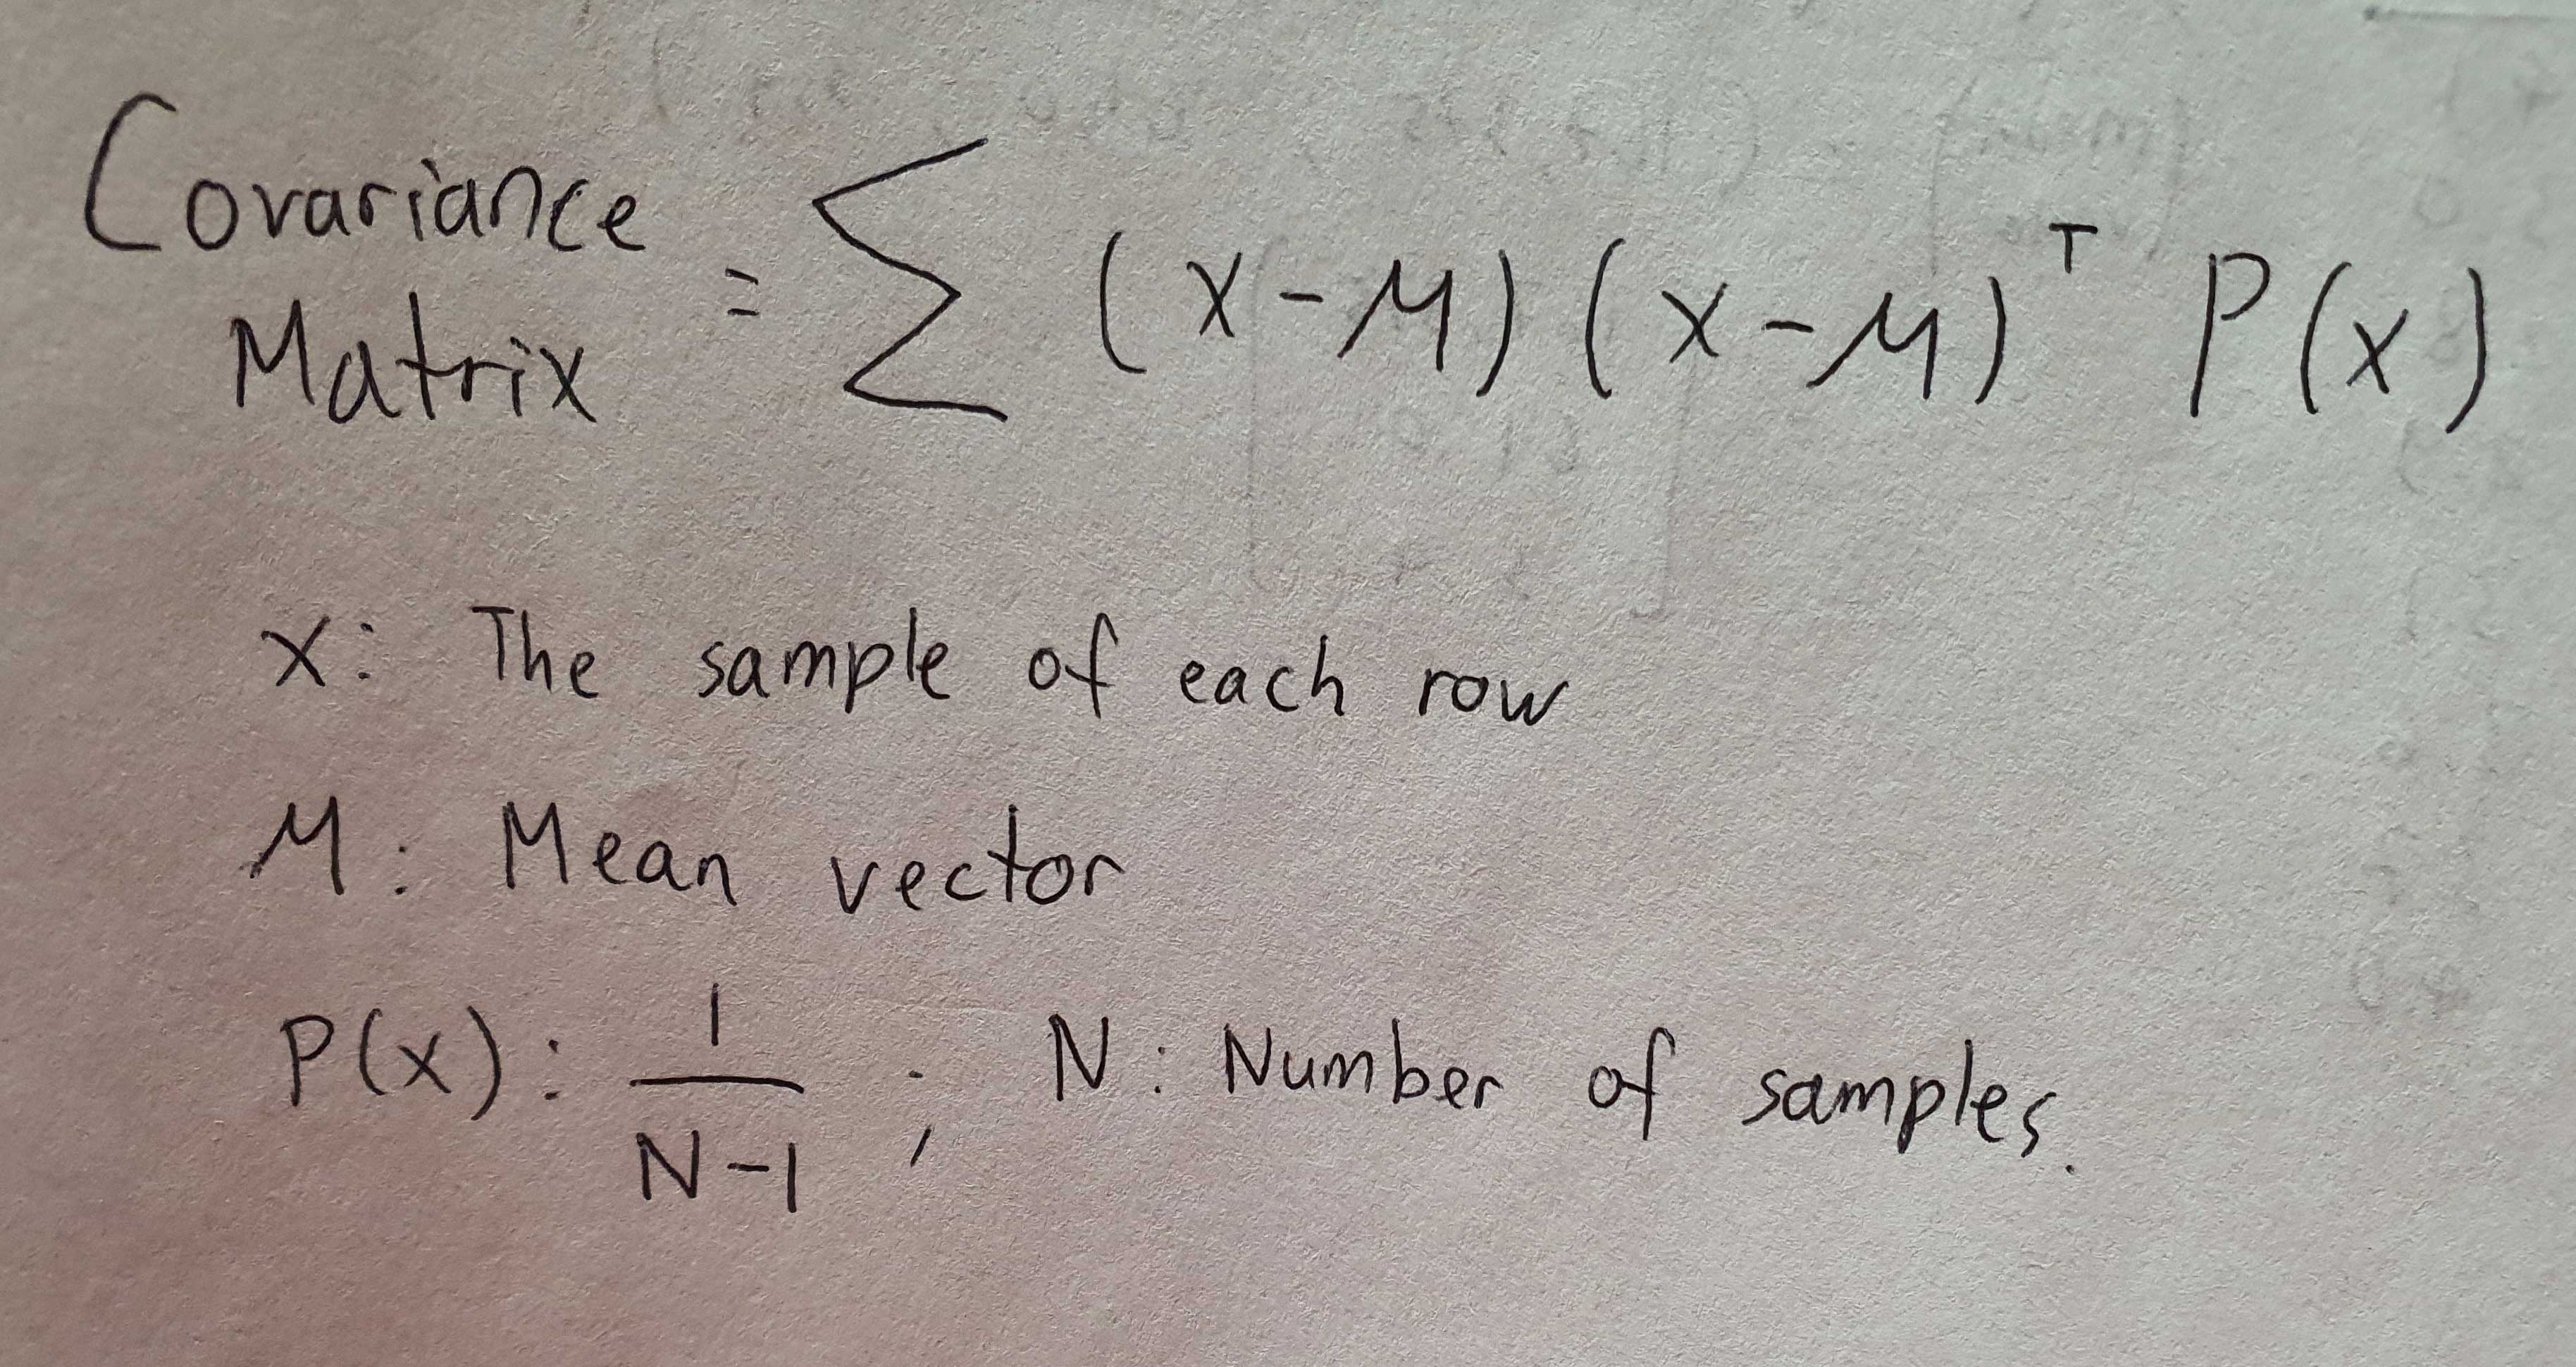 Covariance
Matrix = ∑ (x-μ) (x-μ)ᵀ P(x)
x: The sample of each row
μ: Mean vector
P(x): 1/(N-1) ; N: Number of samples.